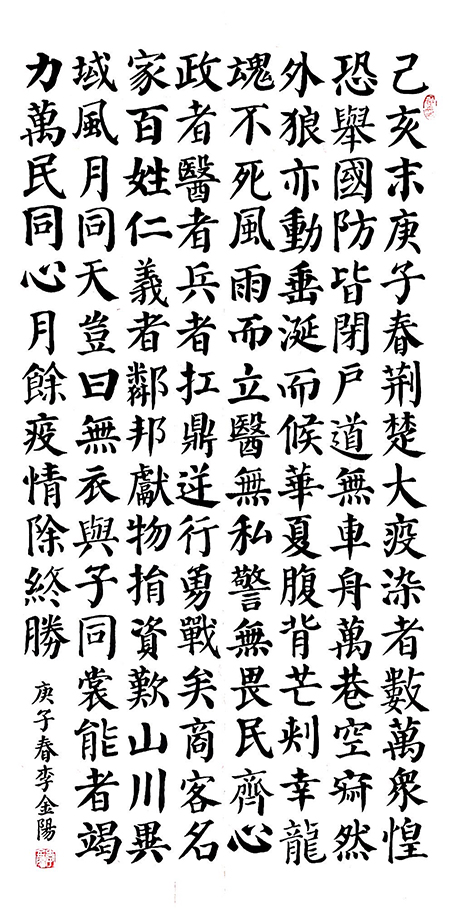 己亥末庚子春荆楚大疫染者數萬衆惶
恐舉國防皆閉戶道無車舟萬巷空寂然
外狼亦動垂涎而候華夏腹背芒刺幸龍
魂不死風雨而立醫無私警無畏民齊心
政者醫者兵者扛鼎逆行勇戰矣商客名
家百姓仁義者鄰邦獻物捐資歎山川異
域風月同天豈曰無衣與子同裳能者竭
力萬民同心月餘疫情除終勝
庚子春李金陽